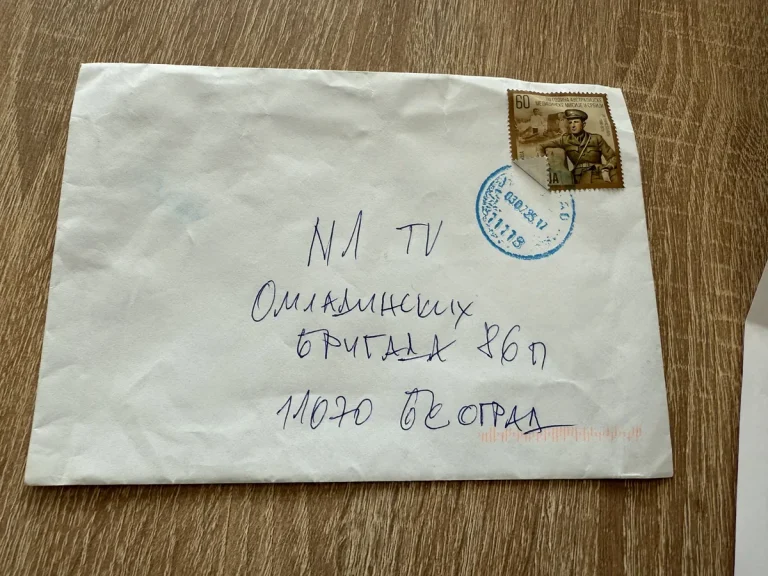 60
030225.17
11118
N1 TV
ОМЛАДИНСКИХ
БРИГАДА 86п
11070 БЕОГРАД